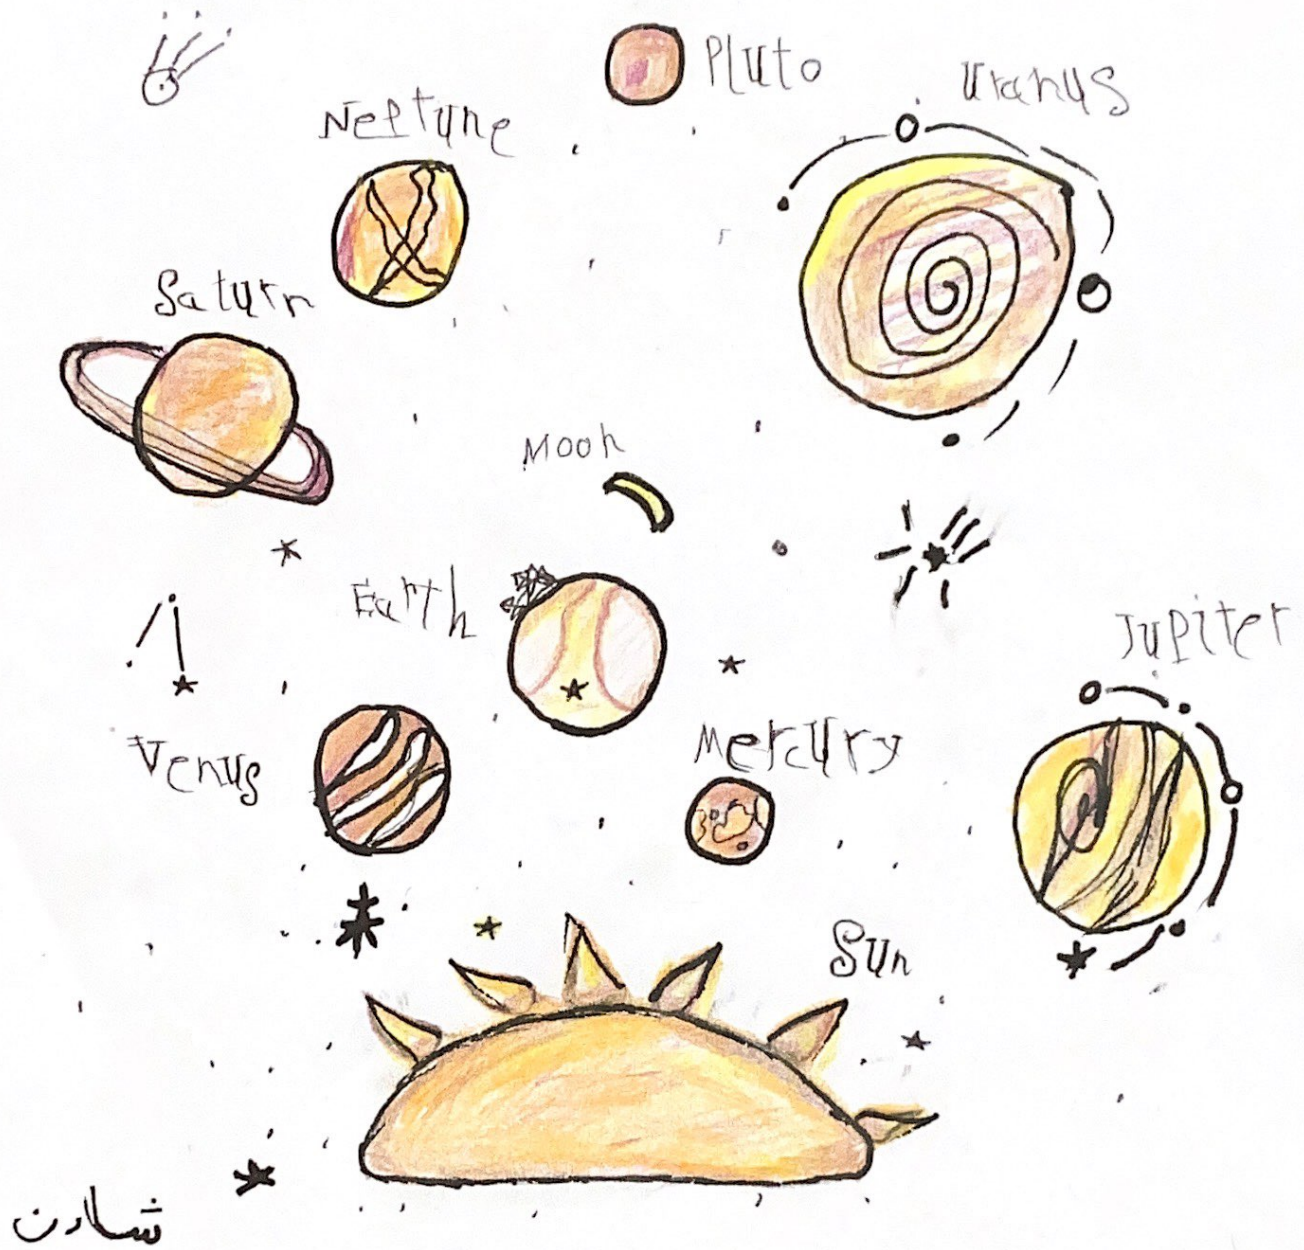 Pluto
Uranus
Neptune
Saturn
Moon
Earth
Jupiter
Venus
Mercury
Sun
شادن